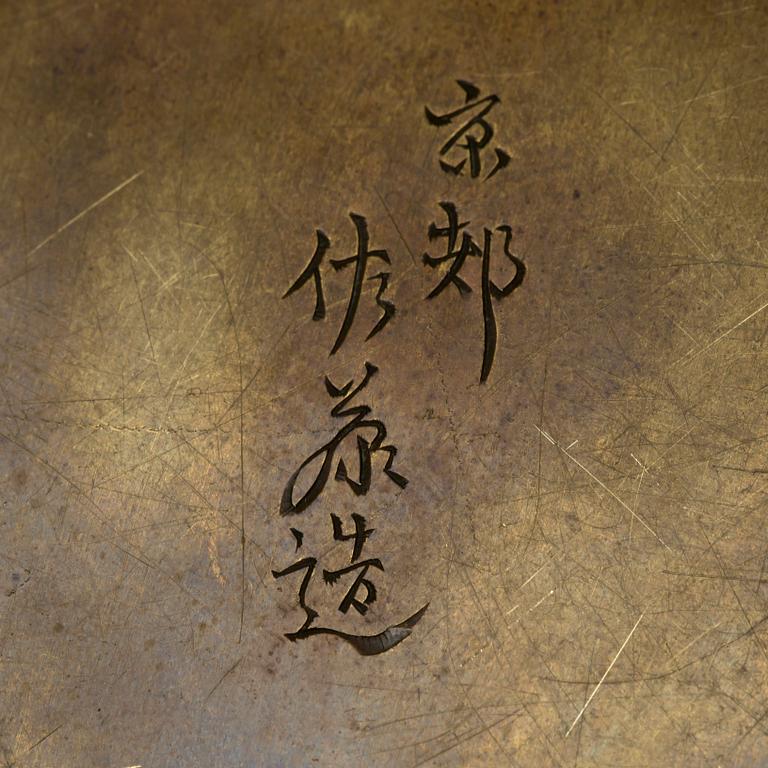 京都
佐藤造